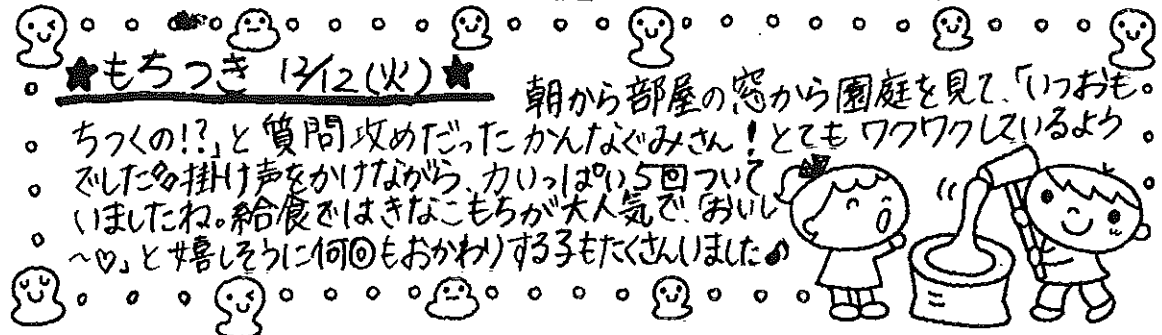 ★もちつき 12/12(火)★
朝から部屋の窓から園庭を見て、「いつおも
ちつくの!?」と質問攻めだったかんなぐみさん!とてもワクワクしているよう
でした♪掛け声をかけながら、力いっぱい5回ついて
いましたね。給食ではきなこもちが大人気で、「おいし
~♡」と嬉しそうに何回もおかわりする子もたくさんいました♪